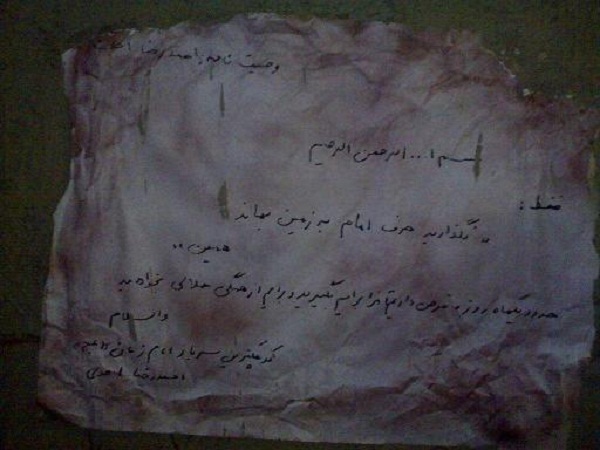 وصیت نامه احمد رضا احدی
بسم ا... الرحمن الرحیم
فقط:
،، نگذارید حرف امام به زمین بماند
همین ،،
حدود یکماه روزه قرض دارم آنرا برایم بگیرید و برایم از همگی حلالی بخواهید
والسلام
کوچکترین سرباز امام زمان (عج)
احمدرضا احدی